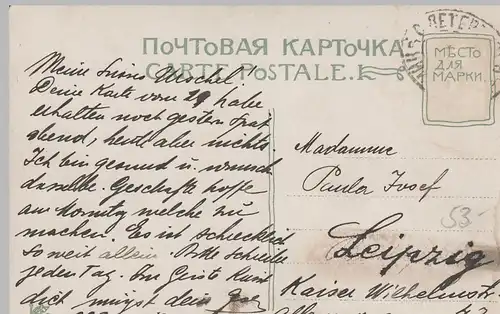 С. ПЕТЕР
ПОЧТОВАЯ КАРТОЧКА
CARTE POSTALE.
МѢСТО
ДЛЯ
МАРКИ.
Meine
Deine Karte vom 29 habe
erhalten noch gestern Spät
abend, heute aber nichts.
Ich bin gesund u. wünsch
dasselbe. Geschäfte hoffe
am Montag welche zu
machen. Es ist schrecklich
so weit allein. Bitte schreibe
jeden Tag. Im Geiste
dich dein
Madamme
Paula Josef
53-
Leipzig
Kaiser Wilhelmstr.